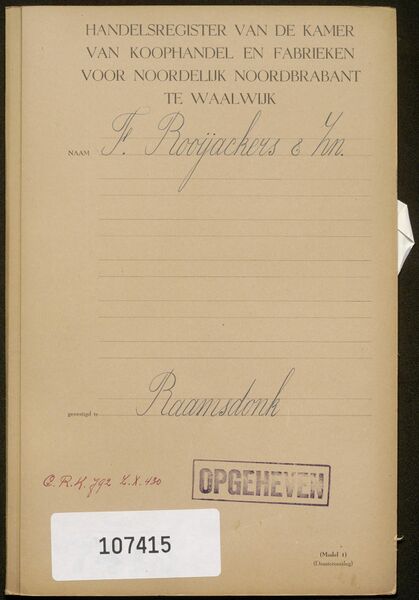 HANDELSREGISTER VAN DE KAMER
VAN KOOPHANDEL EN FABRIEKEN
VOOR NOORDELIJK NOORDBRABANT
TE WAALWIJK
NAAM F. Rooijackers & Zn.
gevestigd te Raamsdonk
C.R.K. 792 L.X. 430
OPGEHEVEN
107415
(Model 1)
(Dossieromslag)